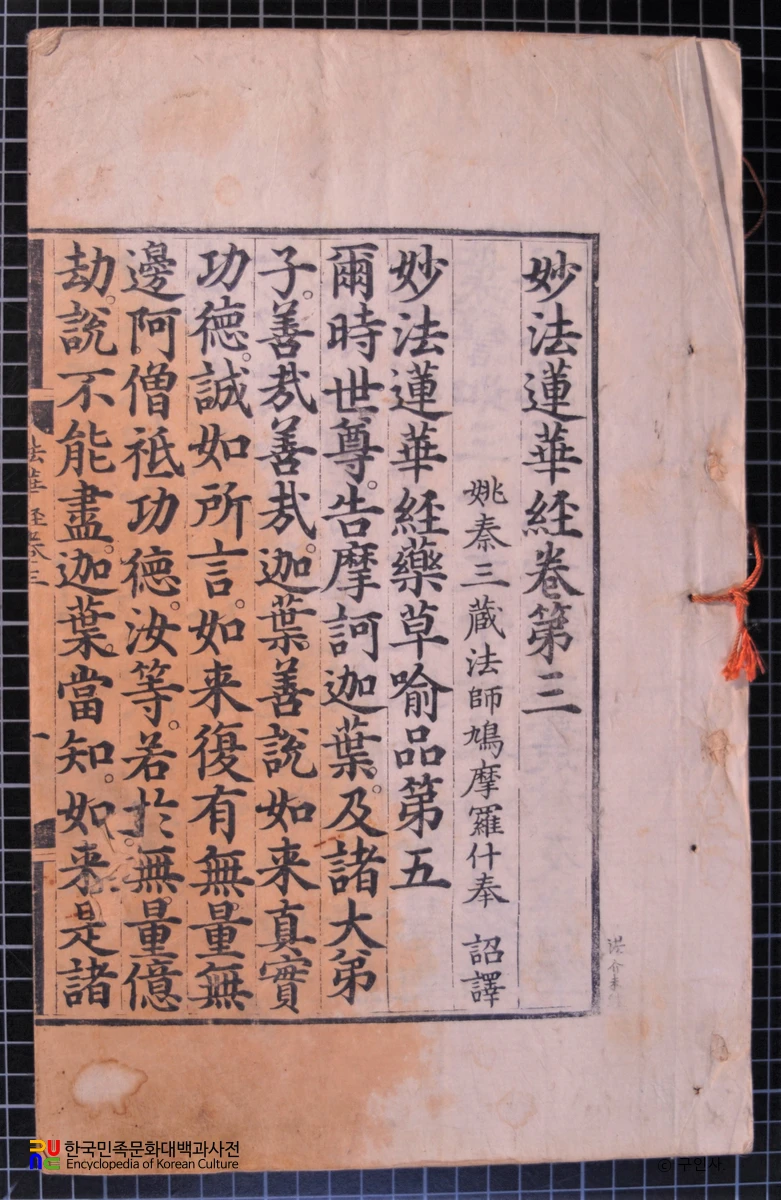 妙法蓮華経卷第三
姚秦三蔵法師鳩摩羅什奉 詔譯
妙法蓮華経藥草喻品第五
爾時世尊。告摩訶迦葉。及諸大弟
子。善㢤善㢤。迦葉。善說如来真實
功德。誠如所言。如来復有無量無
邊阿僧祇功德。汝等。若於無量億
劫。說不能盡。迦葉當知。如来是諸
法華経卷三
一
한국민족문화대백과사전
Encyclopedia of Korean Culture
© 구인사